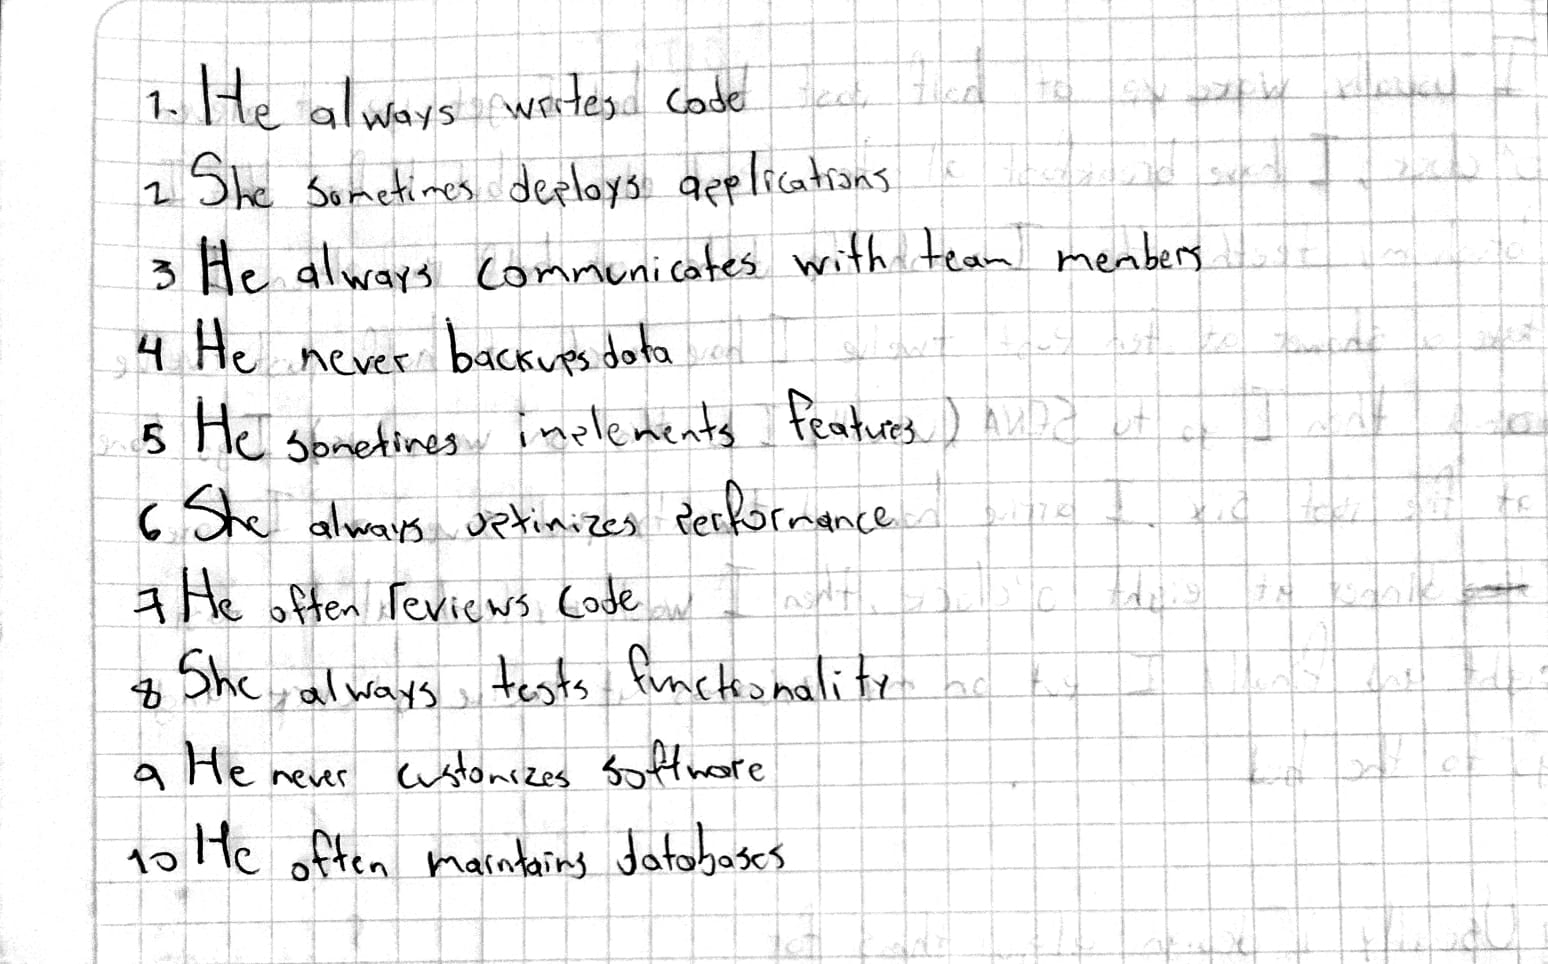 1. He always writes code
2 She sometimes deploys applications
3 He always communicates with team members
4 He never backups data
5 He sometimes implements features
6 She always optimizes performance
7 He often reviews code
8 She always tests functionality
9 He never customizes software
10 He often maintains databases